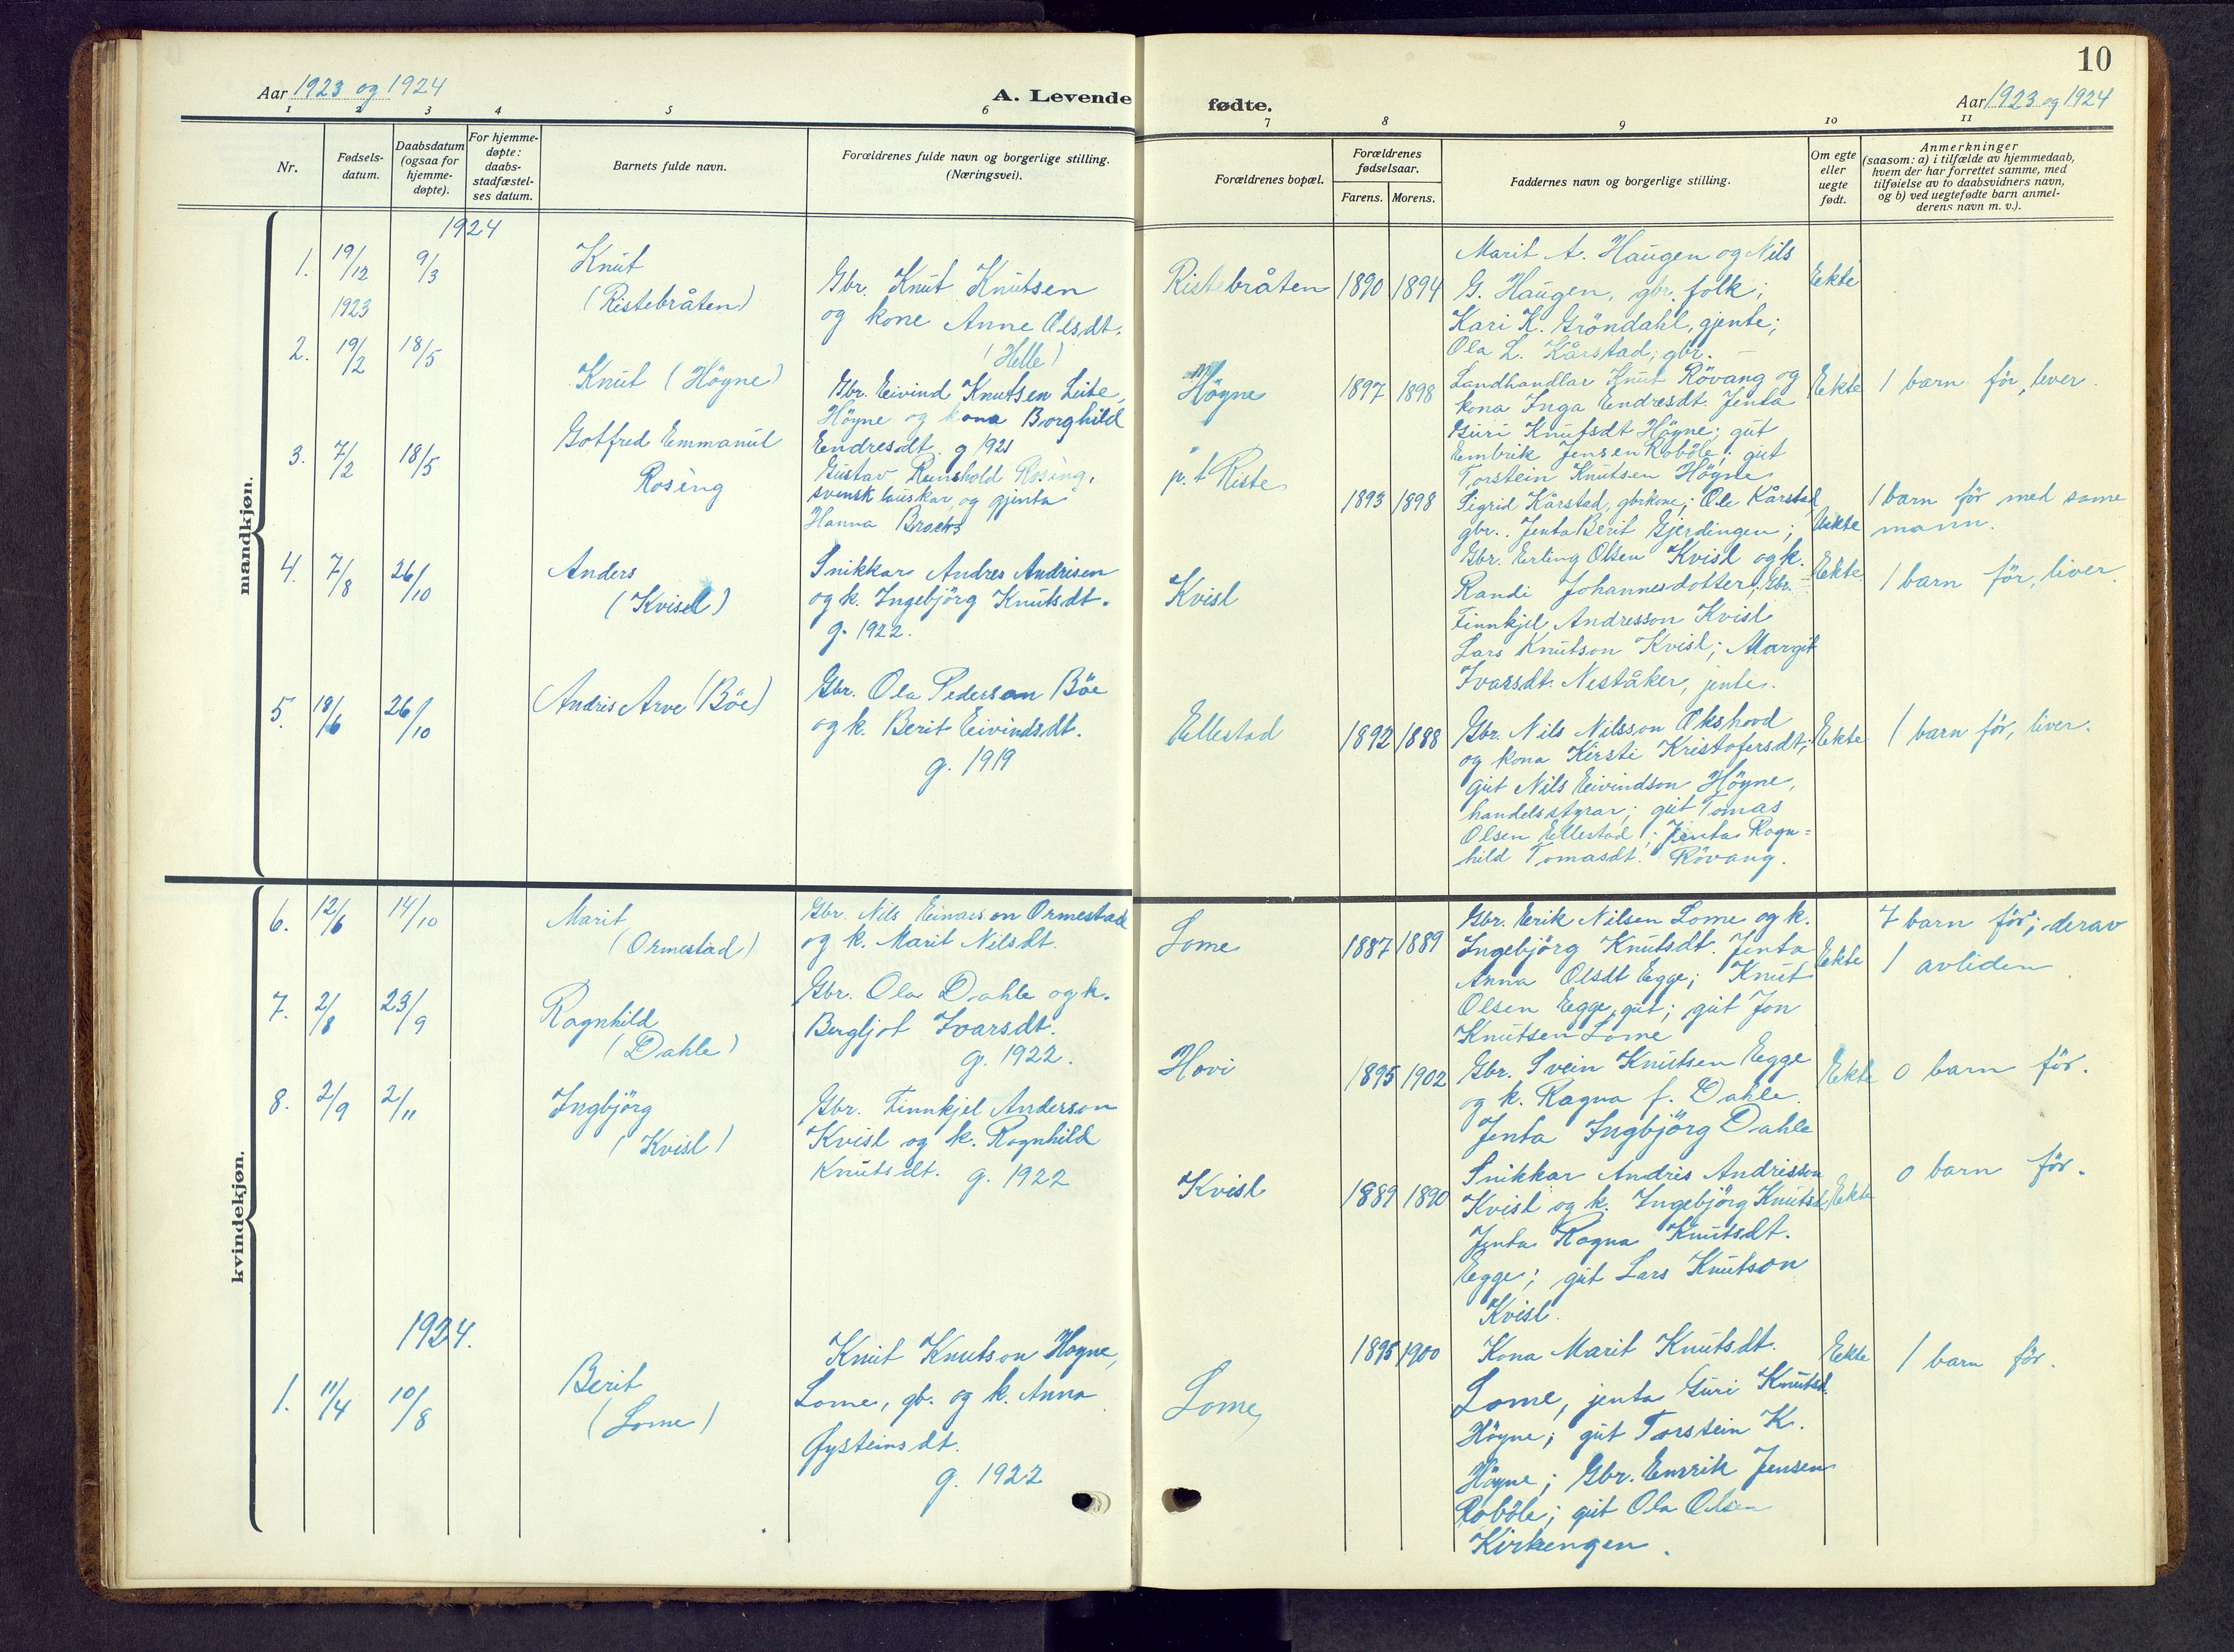 10
Aar 1923 og 1924
A. Levende fødte.
Aar 1923 og 1924
1 2 3 4 5 6 7 8 9 10 11
Nr.
Fødsels-
datum.
Daabsdatum
(ogsaa for
hjemme-
døpte).
For hjemme-
døpte:
daabs-
stadfæstel-
ses datum.
Barnets fulde navn.
Forældrenes fulde navn og borgerlige stilling.
(Næringsvei).
Forældrenes bopæl.
Forældrenes
fødselsaar.
Farens. Morens.
Faddernes navn og borgerlige stilling.
Om egte
eller
uegte
født.
Anmerkninger
(saasom: a) i tilfælde av hjemmedaab,
hvem der har forrettet samme, med
tilføielse av to daabsvidners navn,
og b) ved uegtefødte barn anmel-
derens navn m. v.).
mandkjøn.
1924
1. 19/12 1923 9/3
Knut
(Ristebråten)
Gbr. Knut Knutsen
og kone Anne Olsdt.
(Helle)
Ristebråten 1890 1894
Marit A. Haugen og Nils
G. Haugen, gbr. folk;
Kari K. Gröndahl, gjente;
Ola L. Kårstad, gbr.
Eekte
2. 19/2 18/5
Knut (Høgne)
Gbr. Eivind Knutsen Leite,
Høgne og kona Borghild
Endresdt. g 1921
Høgne 1897 1898
Landhandlar Knut Rövang og
kona Inga Endresdt. Jenta
Guri Knutsdt Høgne; gut
Embrik Jensen Roböle; gut
Torstein Knutsen Högne
Eekte
1 barn för, lever.
3. 7/2 18/5
Gotfred Emmanul
Rosing
Gustav Reinshold Rosing,
svensk lauskar, og gjenta
Hanna
p. t Riste 1893 1898
Sigrid Kårstad, gbrkone; Ole Kårstad
gbr. Jenta Berit Gjerdingen;
Uekte
1 barn för med same
mann.
4. 7/8 26/10
Anders
(Kvisl)
Snikkar Andres Andrisen
og k. Ingebjörg Knutsdt.
g. 1922.
Kvisl
Gbr. Erling Olsen Kvisl og k.
Randi Johannesdotter; Gbr.
Finnkjel Andresson Kvisl
Lars Knutson Kvisl; Margit
Ivarsdt. Neståker, jente.
Eekte
1 barn för, liver.
5. 18/6 26/10
Andris Arve (Böe)
Gbr. Ola Pederson Böe
og k. Berit Eivindsdt.
g. 1919
Ellestad 1892 1888
Gbr. Nils Nilsson Okshovd
og kona Kirsti Kristofersdt;
gut Nils Eivindson Högne,
handelsstyrar; gut Tomas
Olsen Ellestad; Jenta Ragn=
hild Tomasdt. Rövang.
Eekte
1 barn för, liver.
kvindekjøn.
6. 12/6 14/10
Marit
(Ormestad)
Gbr. Nils Einarson Ormestad
og k. Marit Nilsdt.
Lome 1887 1889
Gbr. Erik Nilsen Lome og k.
Ingebjörg Knutsdt. Jenta
Anna Olsdt Egge; Knut
Olsen Egge, gut; gut Jon
Knutsen Lome
Eekte
7 barn för; derav
1 avliden
7. 2/8 23/9
Ragnhild
(Dahle)
Gbr. Ola Dahle og k.
Bergljot Ivarsdt.
g. 1922.
Hovi 1895 1902
Gbr. Svein Knutsen Egge
og k. Ragna f. Dahle.
Jenta Ingbjörg Dahle
Eekte
0 barn för.
8. 2/9 2/11
Ingbjörg
(Kvisl)
Gbr. Finnkjel Anderson
Kvisl og k. Ragnhild
Knutsdt. g. 1922
Kvisl 1889 1890
Snikkar Andris Andrisson
Kvisl og k. Ingebjörg Knutsd.
Jenta Ragna Knutsdt.
Egge; gut Lars Knutson
Kvisl.
Eekte
0 barn för.
1924.
1. 11/4 10/8
Berit
(Lome)
Knut Knutson Høgne,
Lome, gb. og k. Anna
Øysteinsdt.
g. 1922
Lome 1895 1900
Kona Marit Knutsdt.
Lome, jenta Guri Knutsd.
Högne; gut Torstein K.
Högne; Gbr. Emrik Jensen
Roböle; gut Ola Olsen
Kirkengen.
Eekte
1 barn för.